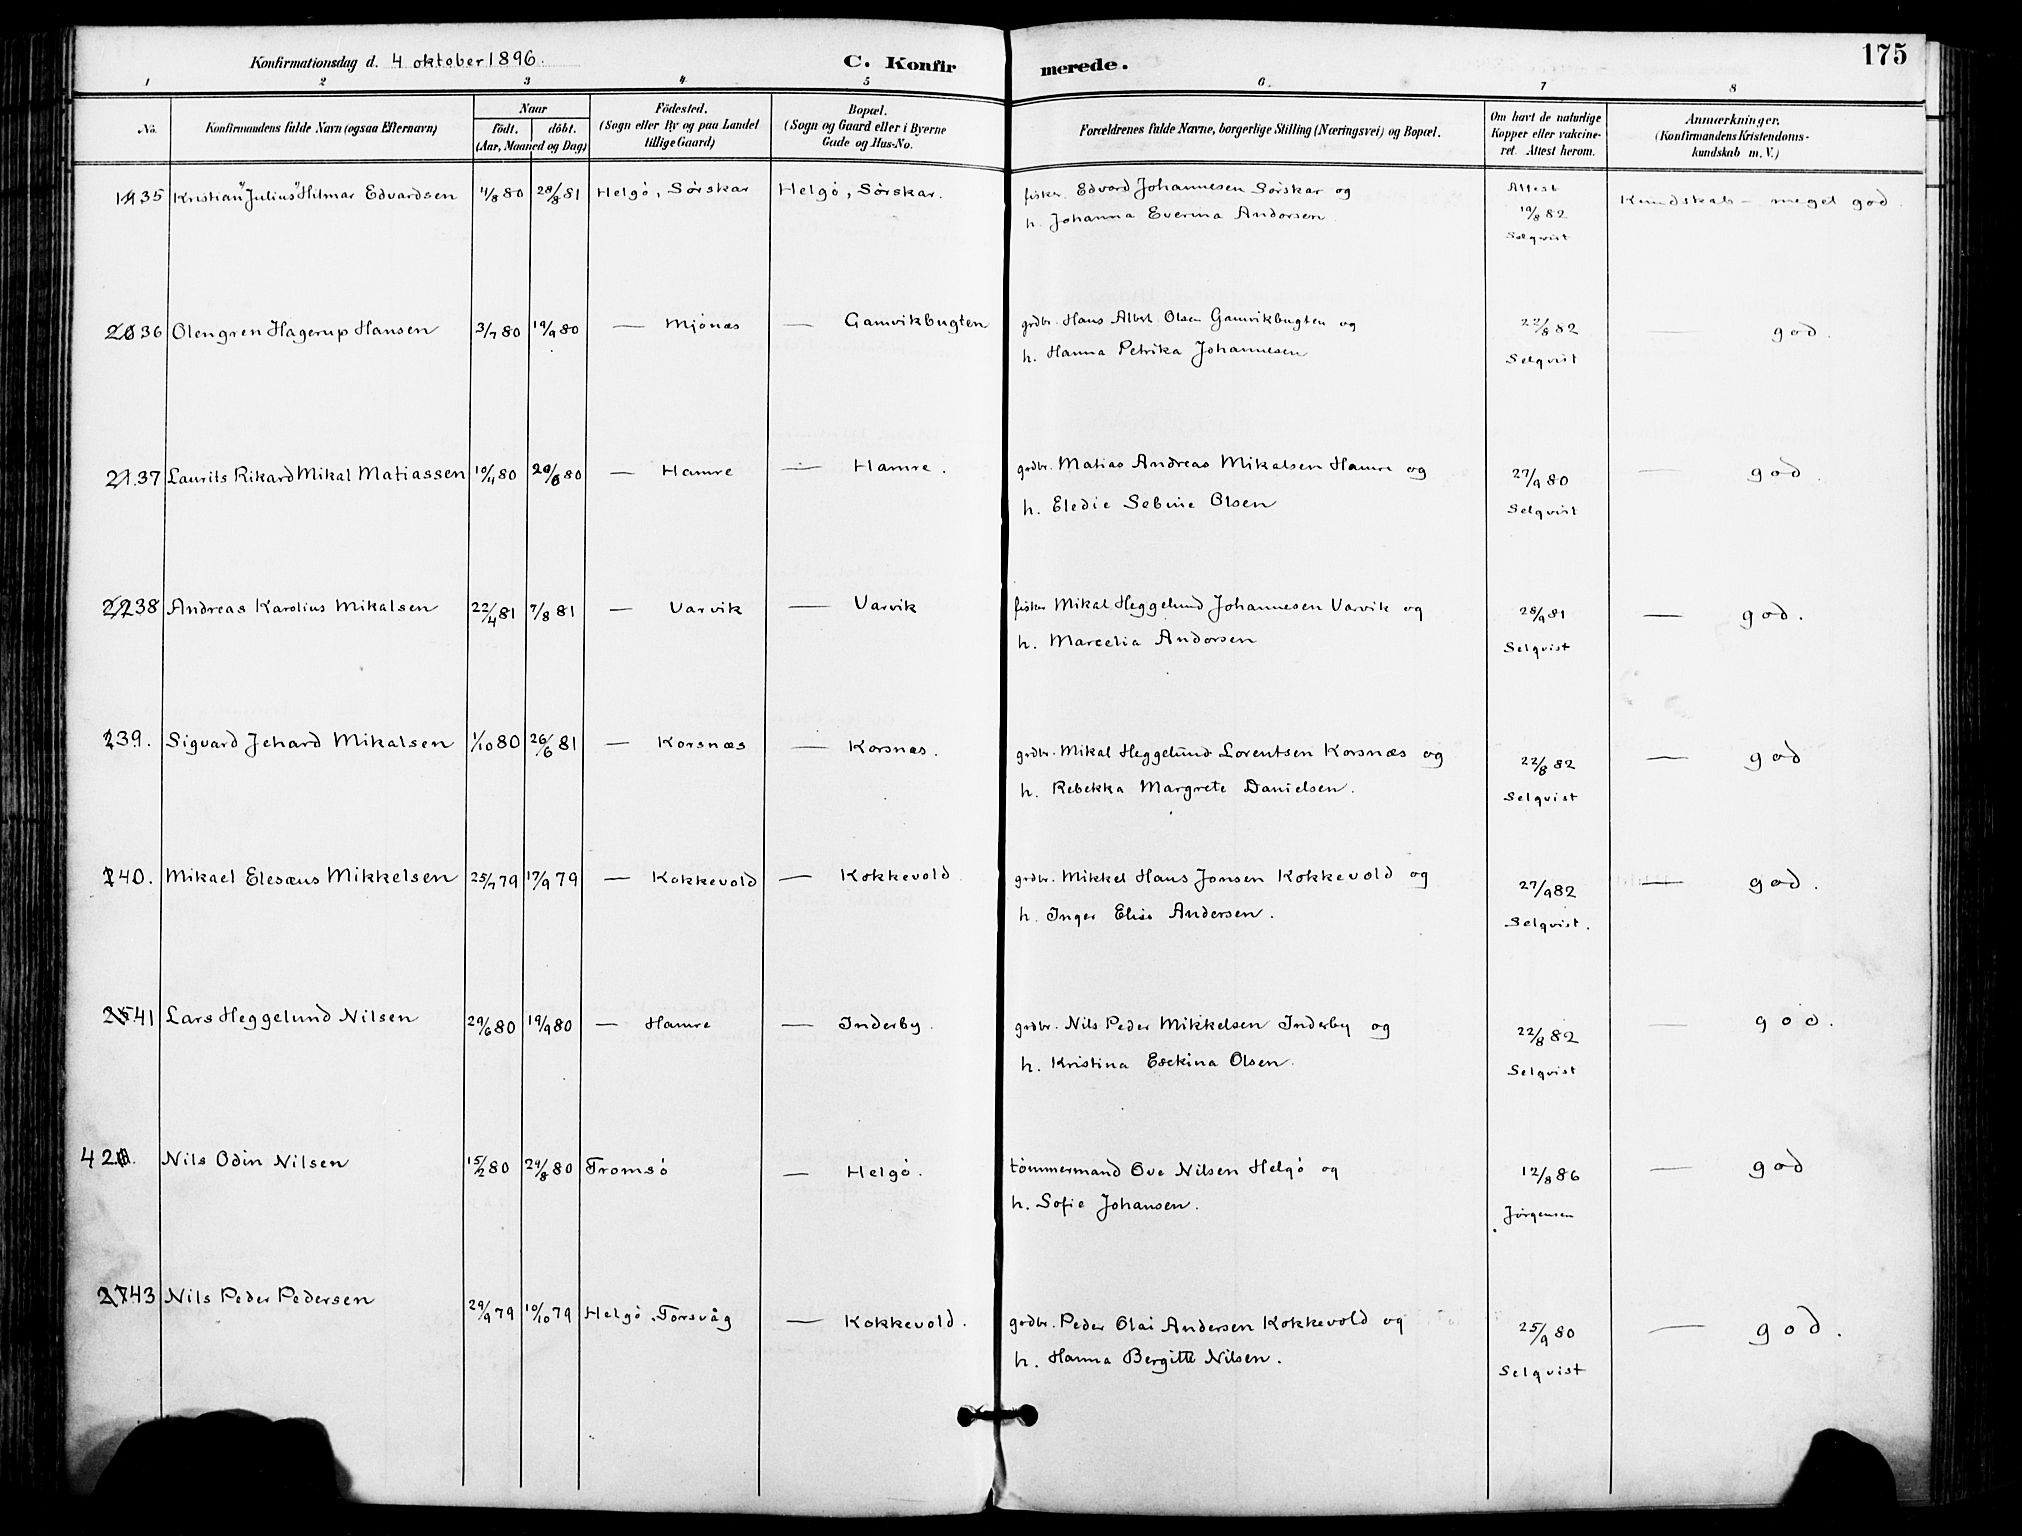 175
Konfirmationsdag d. 4 oktober 1896.
C. Konfir merede.
1 2 3 4 5 6. 7 8
No. Konfirmandens fulde Navn (ogsaa Efternavn)
Naar
födt. döbt.
(Aar, Maaned og Dag)
Födested.
(Sogn eller By og paa Landet
tillige Gaard)
Bopæl.
(Sogn og Gaard eller i Byerne
Gade og Hus-No.
Forældrenes fulde Navne, borgerlige Stilling (Næringsvei) og Bopæl.
Om havt de naturlige
Kopper eller vakcine-
ret. Attest herom.
Anmærkninger,
(Konfirmandens Kristendoms-
kundskab m. V.)
35 Kristian "Julius" Hilmar Edvardsen 11/8 80 28/8 81 Helgö, Sörskar Helgö, Sörskar. fisker. Edvard Johannesen Sörskar og Attest Kundskab – meget god.
h. Johanna Everina Andorsen 19/8 82
Selqvist
36 Olengren Hagerup Hansen 3/7 80 19/9 80 — Mjönæs — Gamvikbugten grdbr. Hans Albert Olsen Gamvikbugten og 22/8 82 — god.
h. Hanna Petrika Johannesen Selqvist
37 Laurits Rikard Mikal Matiassen 10/4 80 20/6 80 — Hamre — Hamre. grdbr. Matias Andreas Mikalsen Hamre og 27/9 80 — god.
h. Eledie Sebine Olsen Selqvist
38 Andreas Karolius Mikalsen 22/4 81 7/8 81 — Varvik — Varvik fisker Mikal Heggelund Johannesen Varvik og 28/9 81 — god.
h. Marcelia Andorsen Selqvist
39. Sigvard Jehard Mikalsen 1/10 80 26/6 81 — Korsnæs — Korsnæs. grdbr. Mikal Heggelund Lorentsen Korsnæs og 22/8 82 — god
h. Rebekka Margrete Danielsen. Selqvist
40. Mikael Elesæus Mikkelsen 25/7 79 17/9 79 — Kokkevold — Kokkevold. grdbr. Mikkel Hans Jonsen Kokkevold og 27/9 82 — god.
h. Inger Elise Andersen. Selqvist.
41 Lars Heggelund Nilsen 29/6 80 19/9 80 — Hamre — Inderby. grdbr. Nils Peder Mikkelsen Inderby og 22/8 82 — god.
h. Kristina Esekina Olsen. Selqvist
42 Nils Odin Nilsen 15/2 80 24/8 80 Tromsö — Helgö. tömmermand Ove Nilsen Helgö og 12/8 86 — god
h. Sofie Johansen. Jörgensen
43 Nils Peder Pedersen 29/9 79 10/10 79 Helgö, Torsvåg — Kokkevold. grdbr. Peder Olai Andersen Kokkevold og 25/9 80 — god.
h. Hanna Bergitte Nilsen. Selqvist